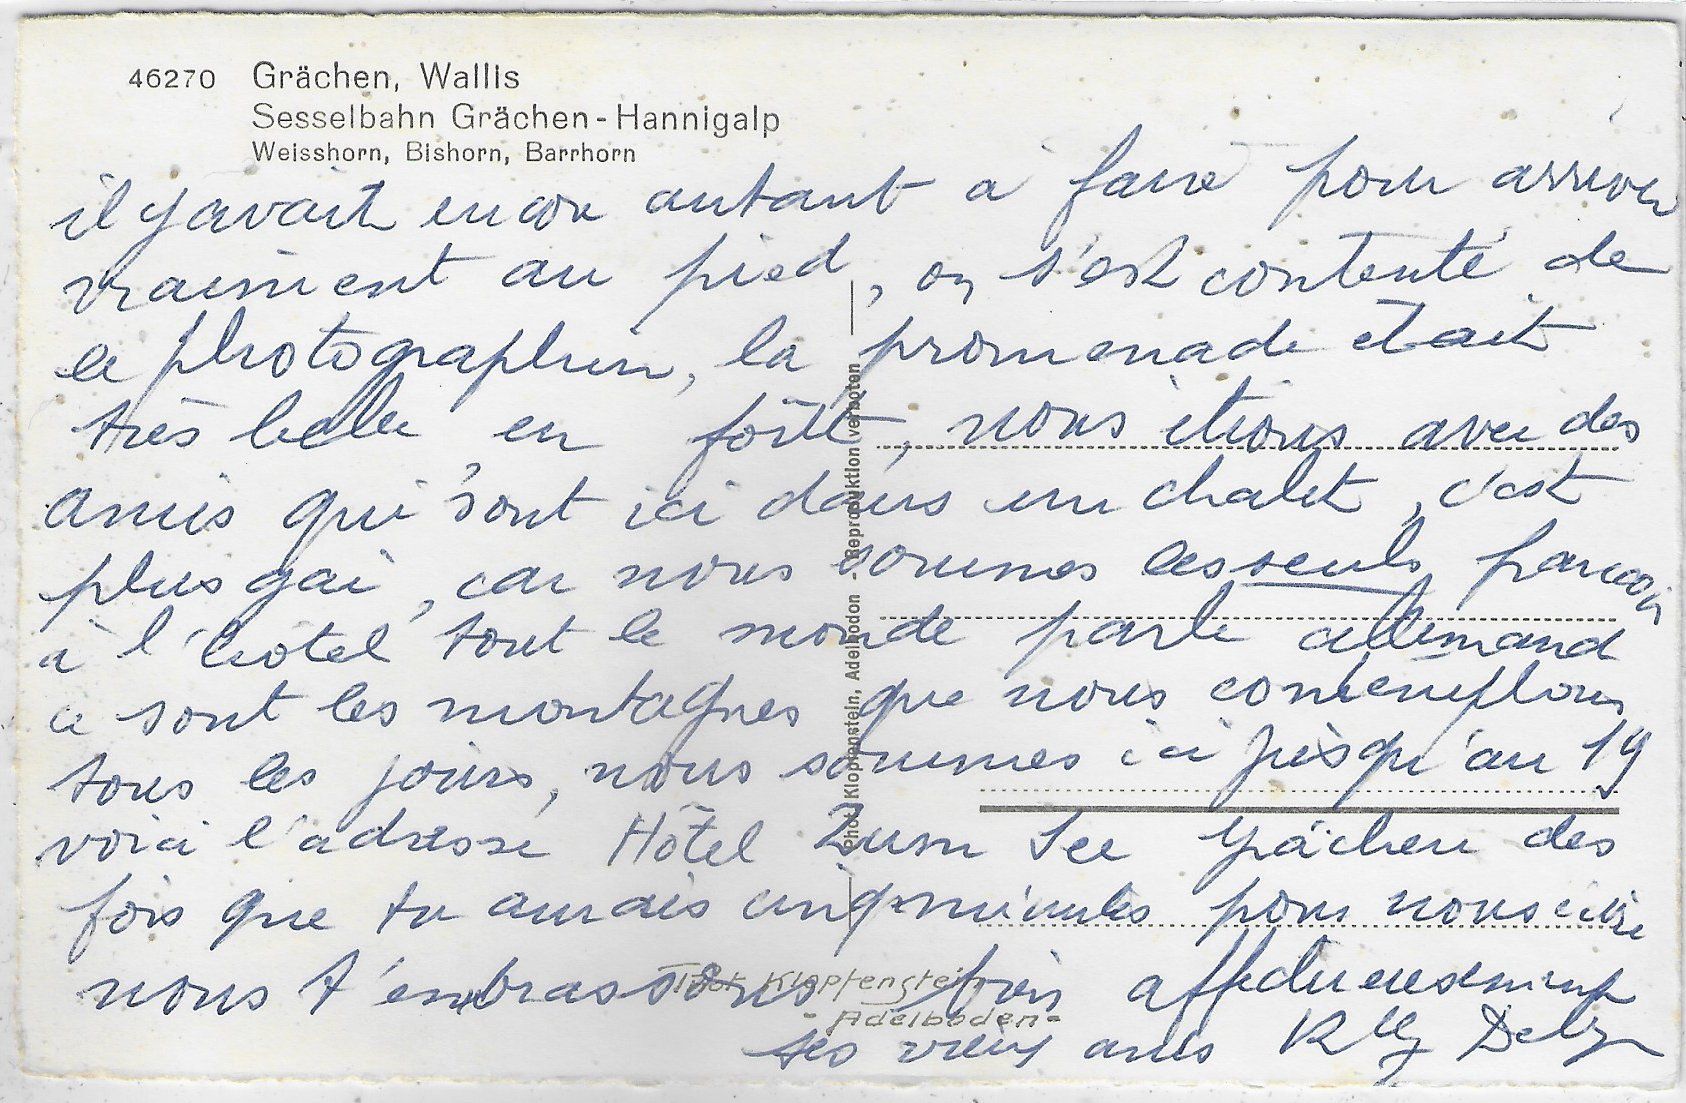 46270 Grächen, Wallis
Sesselbahn Grächen-Hannigalp
Weisshorn, Bishorn, Barrhorn
il y avait encore autant à faire pour arriver
vraiment au pied, on s'est contenté de
le photographier, la promenade était
très belle en forêt, nous étions avec des
amis qui sont ici dans un chalet, c'est
plus gai, car nous sommes les seuls français
à l'hôtel tout le monde parle allemand
ce sont les montagnes que nous contemplons
tous les jours, nous sommes ici jusqu'au 19
voici l'adresse Hôtel Zum See Grächen des
fois que tu aurais cinq minutes pour nous écrire
nous t'embrassons bien affectueusement
tes vieux amis
Phot. Klopfenstein, Adelboden - Reproduktion verboten
Phot. Klopfenstein
- Adelboden -